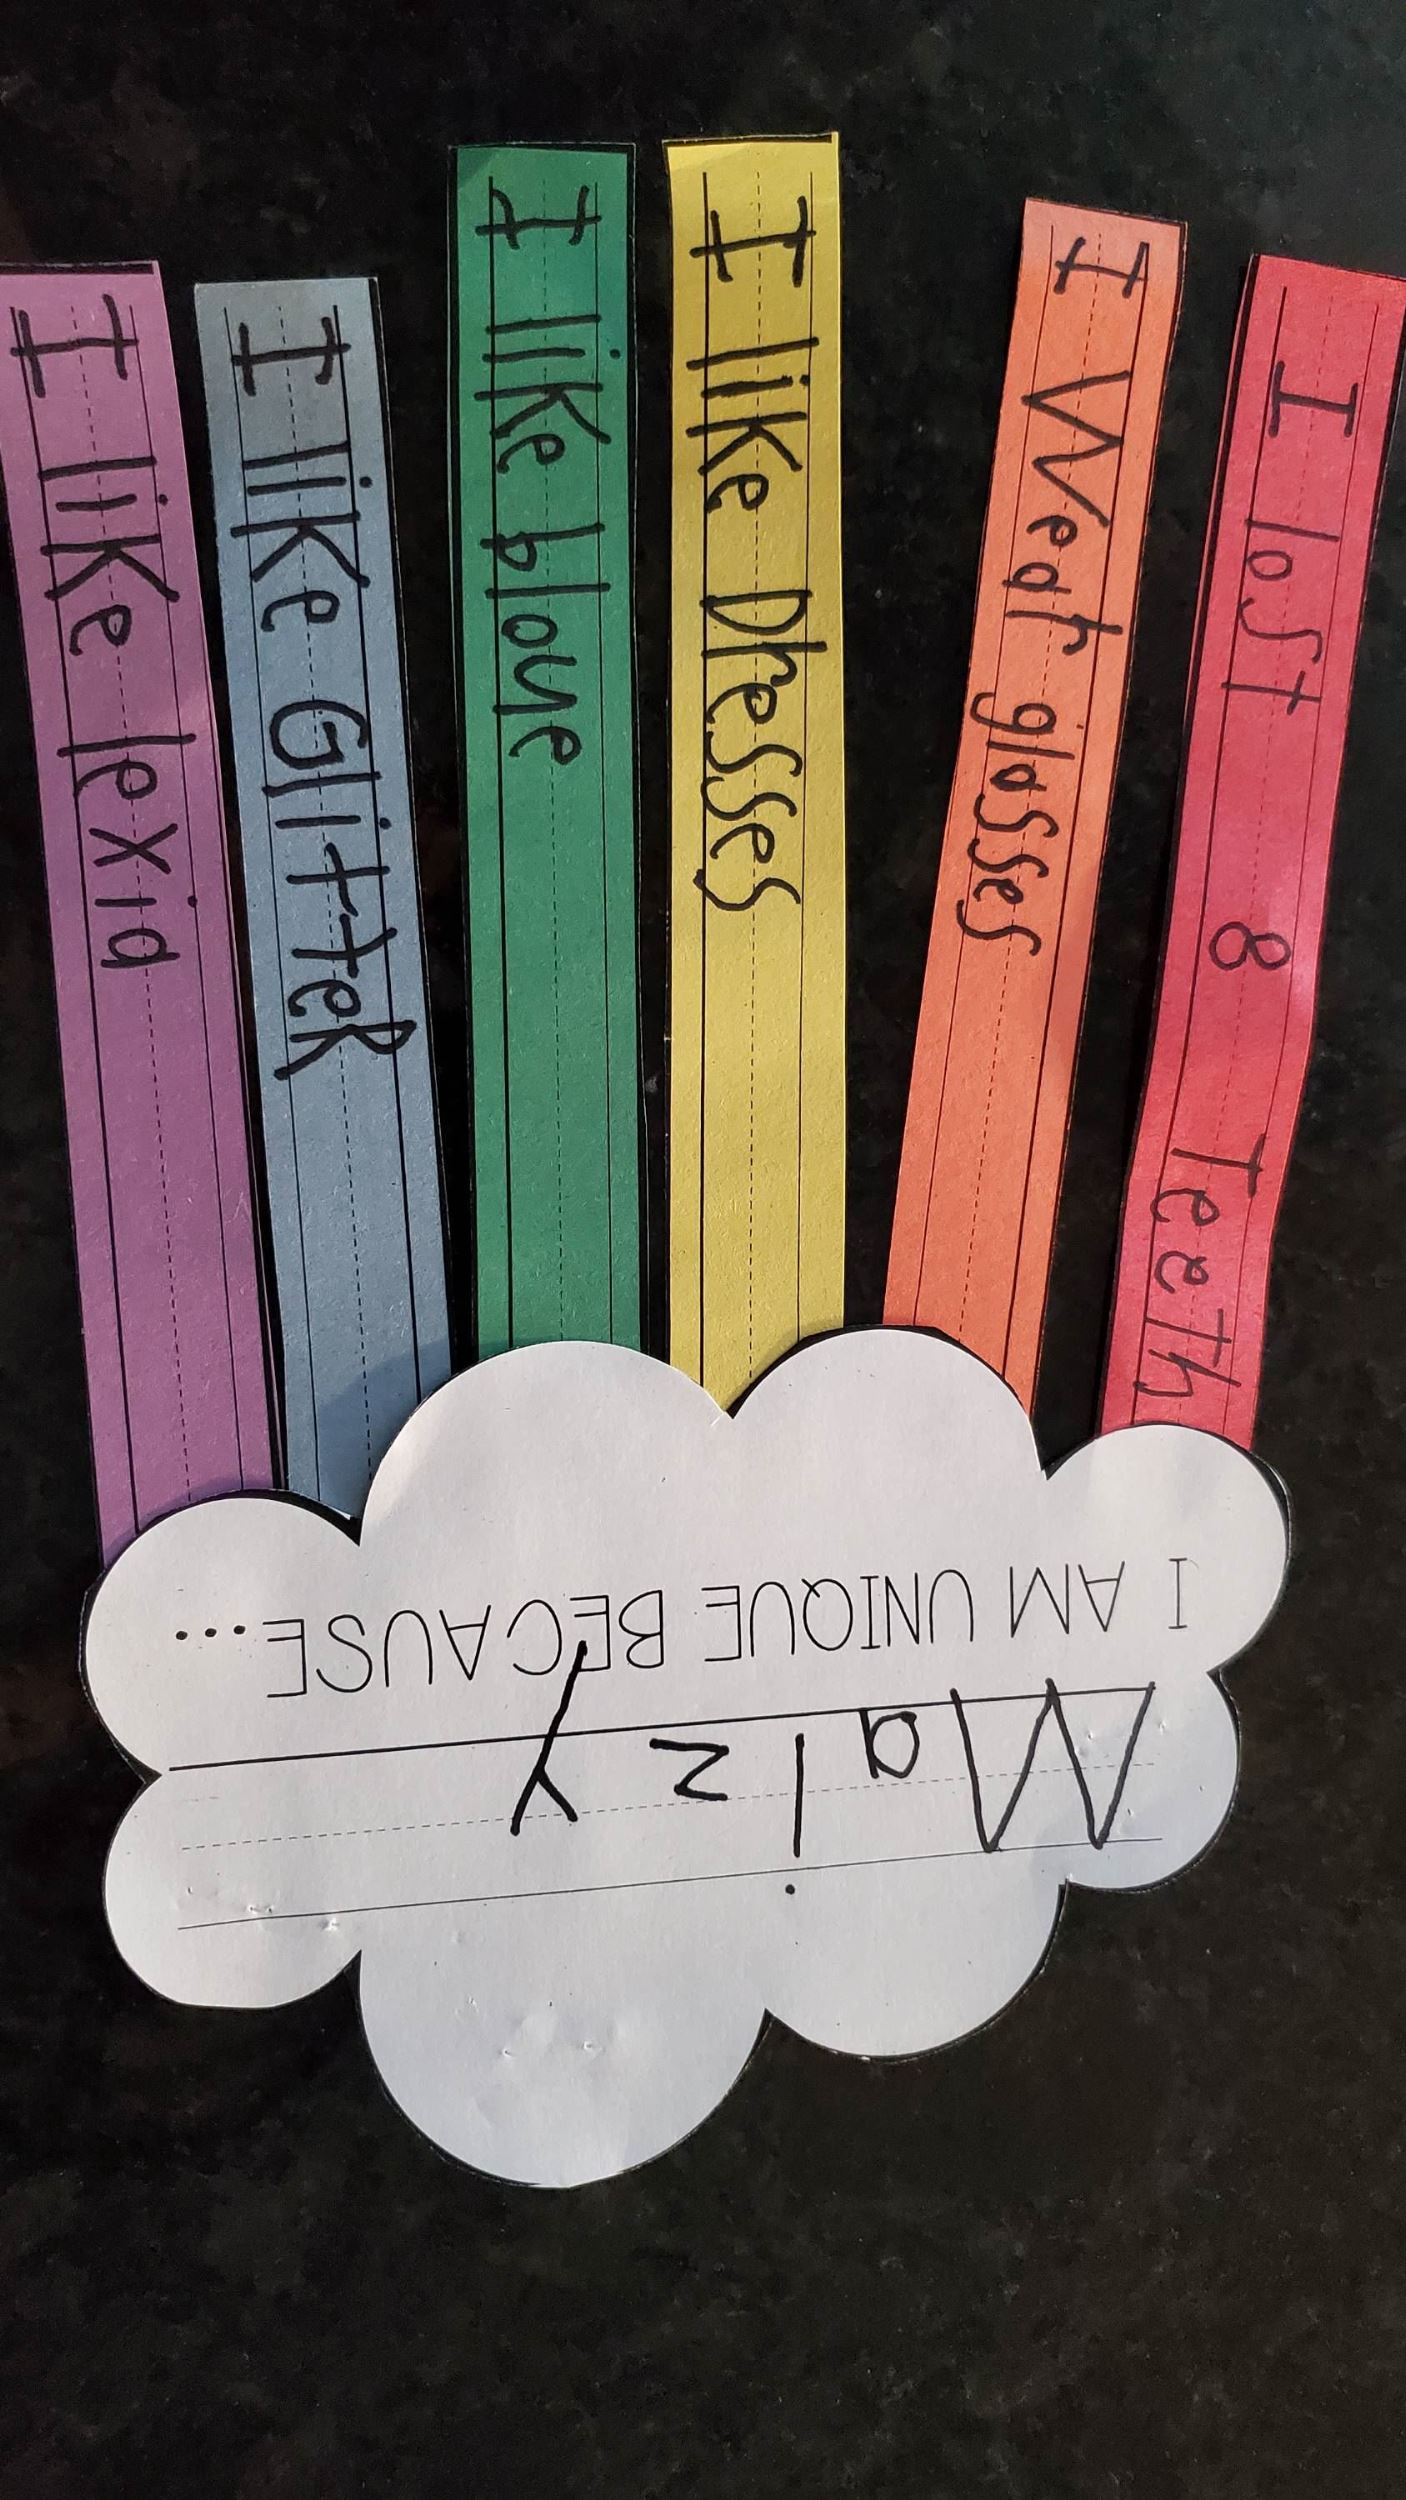 Maizy
I AM UNIQUE BECAUSE...
I lost 8 Teeth
I Wear glasses
I like Dresses
I like bloue
I like GlitteR
I like lexia